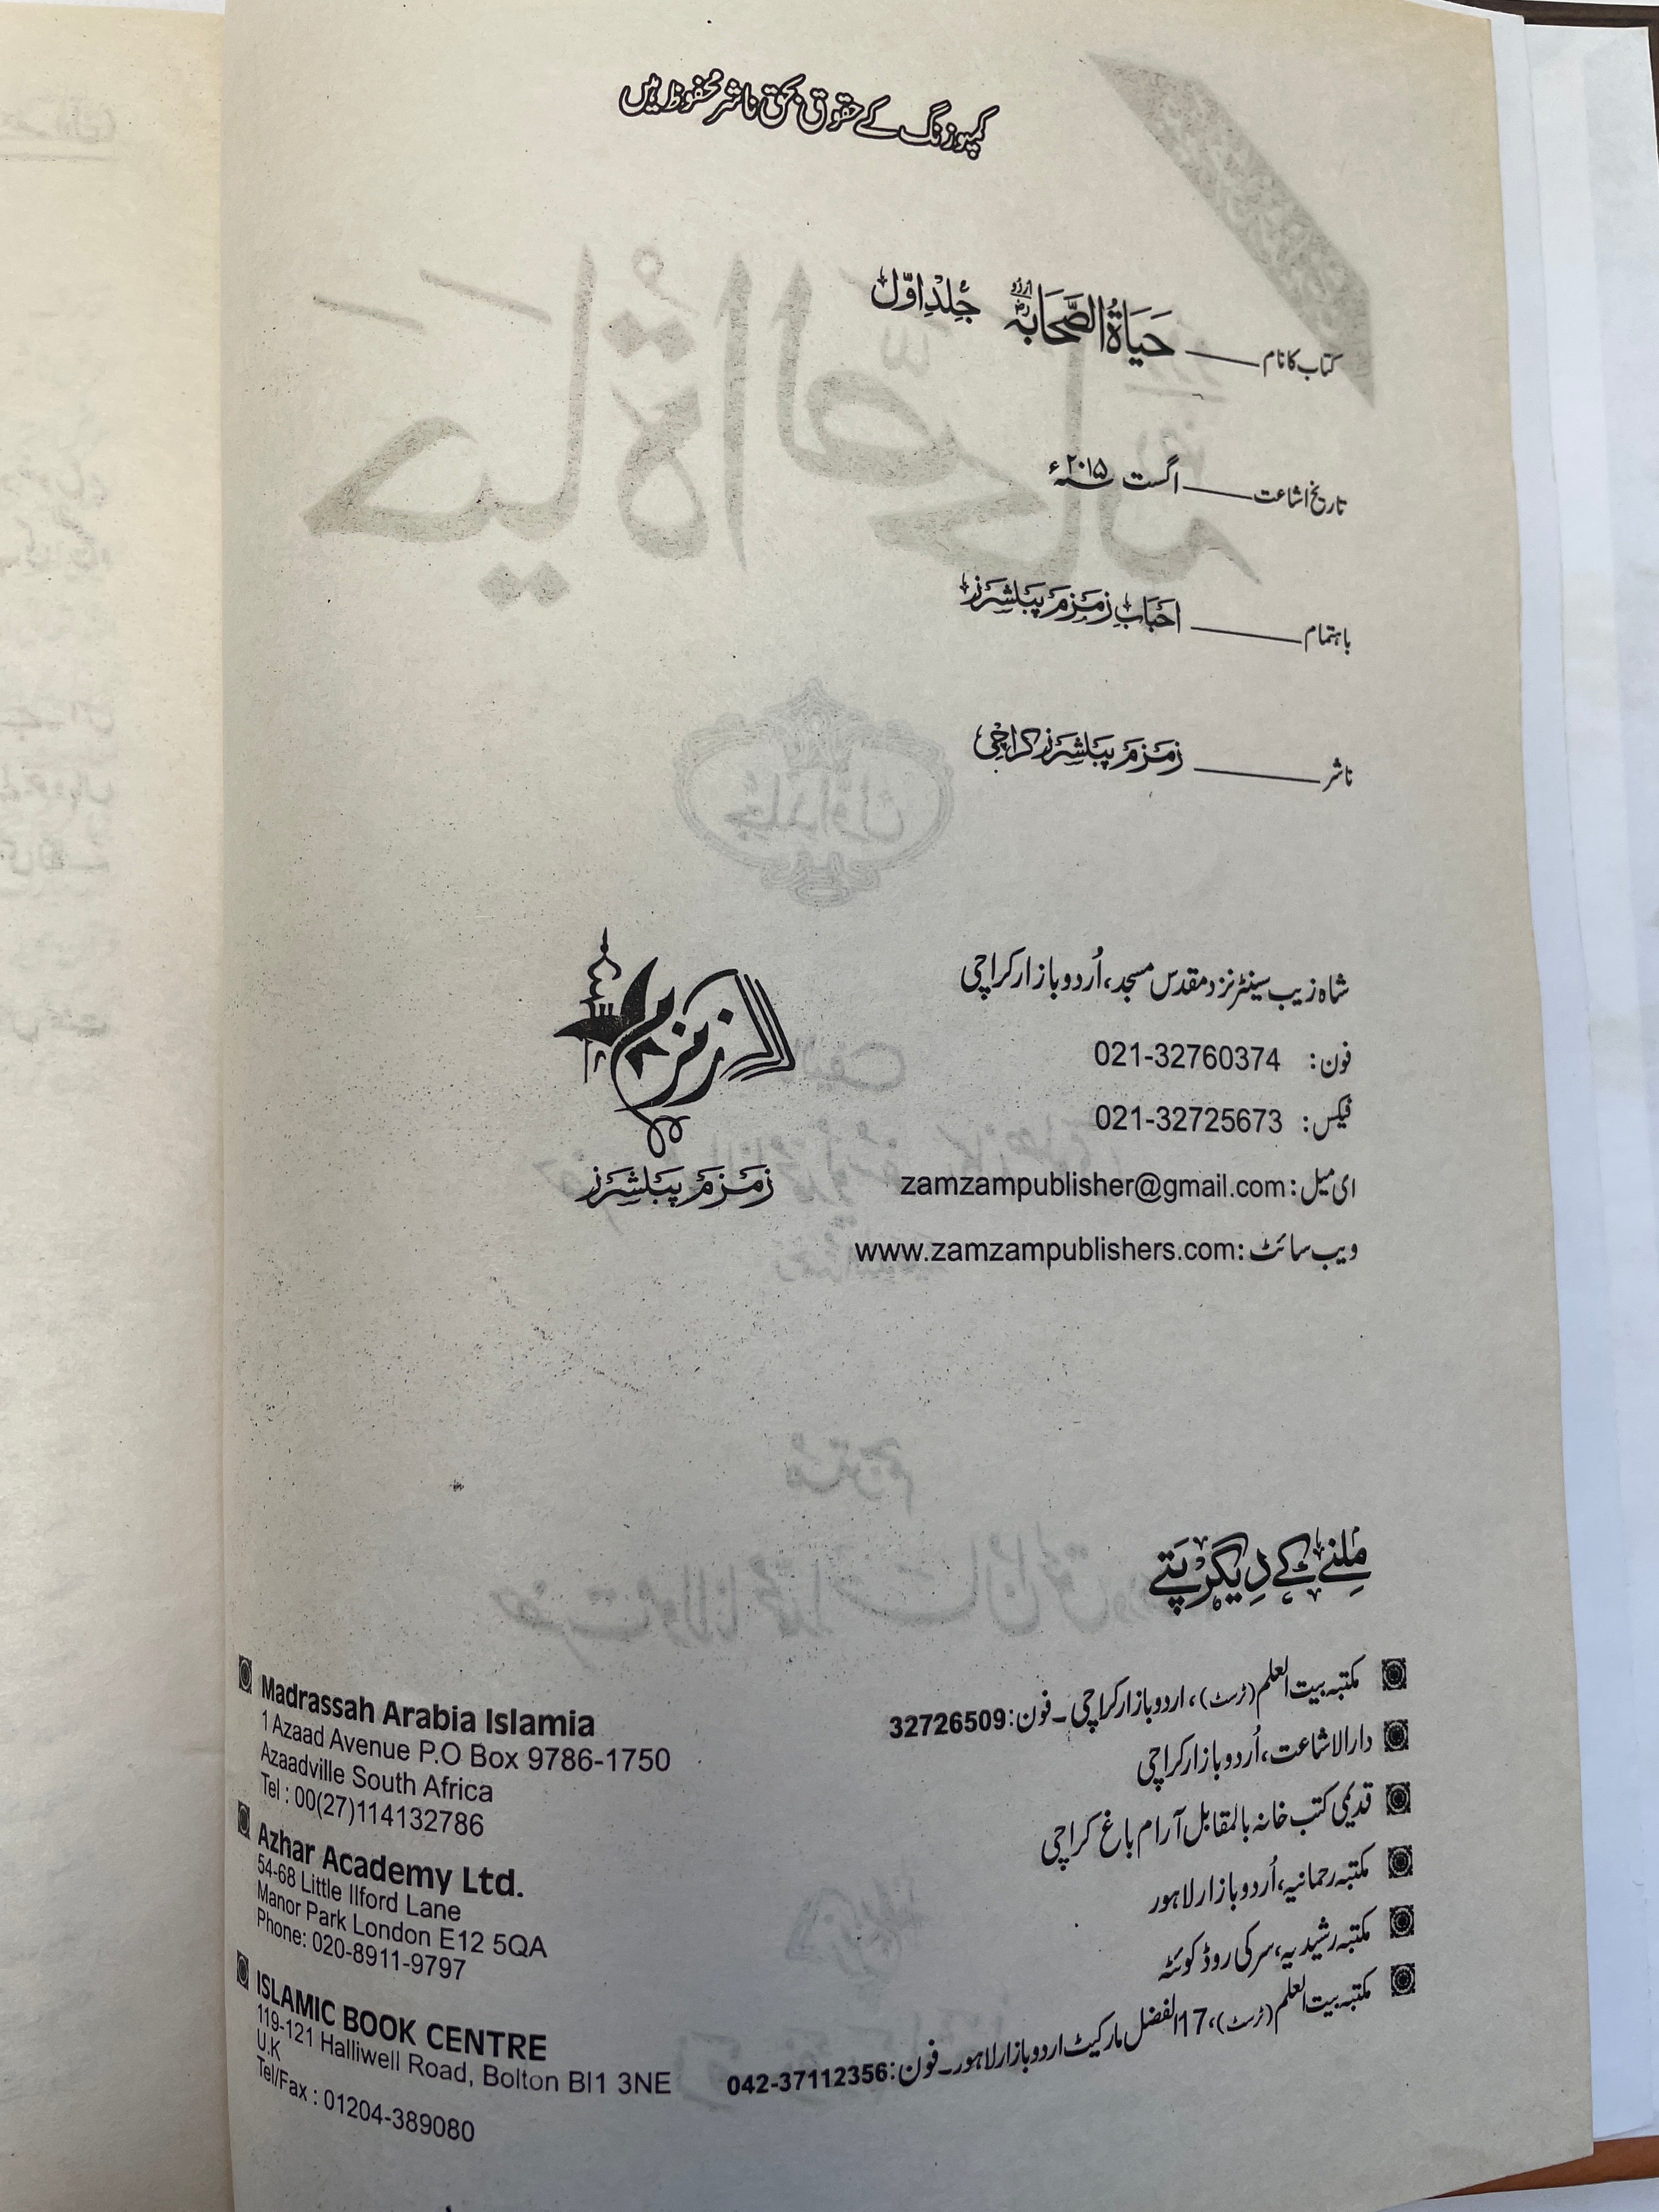 کمپوزنگ کے حقوق بحق ناشر محفوظ ہیں
کتاب کا نام ـــــ حَیَاةُ الصَّحَابَہؓ اردو جِلدِ اوّل
تاریخ اشاعت ـــــ اگست ۲۰۱۵ء
باہتمام ـــــ احبَاب زمزم پبلشرز
ناشر ـــــ زمزم پبلشرز کراچی
شاہ زیب سینٹر نزد مقدس مسجد، اُردو بازار کراچی
فون: 021-32760374
فیکس: 021-32725673
ای میل: zamzampublisher@gmail.com
ویب سائٹ: www.zamzampublishers.com
زمزم
زمزم پبلشرز
مِلنے کے دِیگر پَتے
مکتبہ بیت العلم (ٹرسٹ)، اردو بازار کراچی۔ فون: 32726509
دارالاشاعت، اُردو بازار کراچی
قدیمی کتب خانہ بالمقابل آرام باغ کراچی
مکتبہ رحمانیہ، اُردو بازار لاہور
مکتبہ رشیدیہ، سرکی روڈ کوئٹہ
مکتبہ بیت العلم (ٹرسٹ)، 17 الفضل مارکیٹ اردو بازار لاہور۔ فون: 042-37112356
Madrassah Arabia Islamia
1 Azaad Avenue P.O Box 9786-1750
Azaadville South Africa
Tel : 00(27)114132786
Azhar Academy Ltd.
54-68 Little Ilford Lane
Manor Park London E12 5QA
Phone: 020-8911-9797
ISLAMIC BOOK CENTRE
119-121 Halliwell Road, Bolton Bl1 3NE
U.K
Tel/Fax : 01204-389080